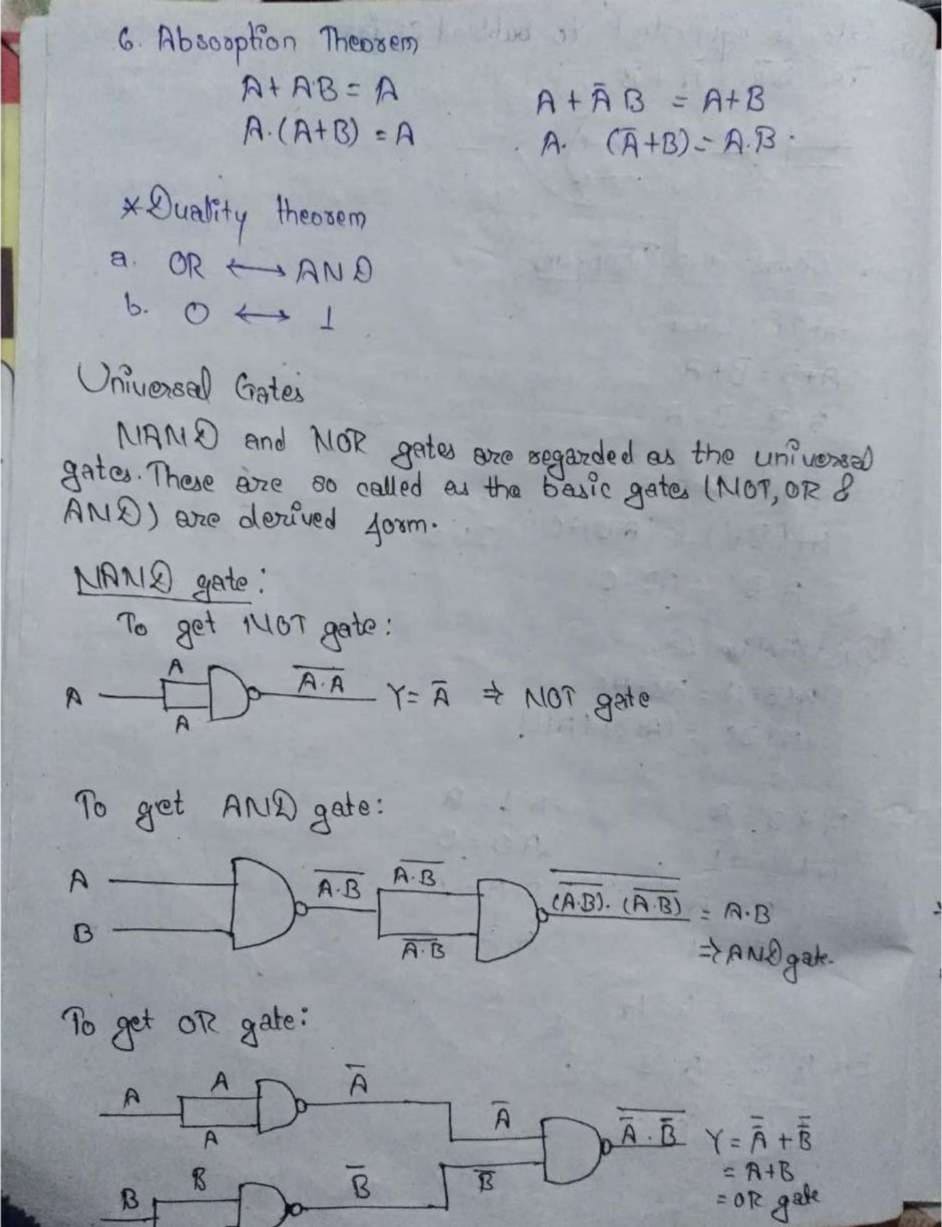 6. Absorption Theorem
A + AB = A
A + Ā B = A+B
A.(A+B) = A
A. (Ā+B) = A.B.
* Duality theorem
a. OR ⟷ AND
b. 0 ⟷ 1
Universal Gates
NAND and NOR gates are regarded as the universal
gates. These are so called as the basic gates (NOT, OR &
AND) are derived form.
NAND gate:
To get NOT gate:
A A A A̅.̅A̅ Y = Ā ⇒ NOT gate
To get AND gate:
A B A̅.̅B̅ A̅.̅B̅ A̅.̅B̅ \overline{(\overline{A.B}).(\overline{A.B})} = A.B
⇒ AND gate.
To get OR gate:
A A A Ā Ā \overline{Ā . B̄} Y = \overline{\overline{A}} + \overline{\overline{B}}
B B B̄ B̄ = A+B
= OR gate